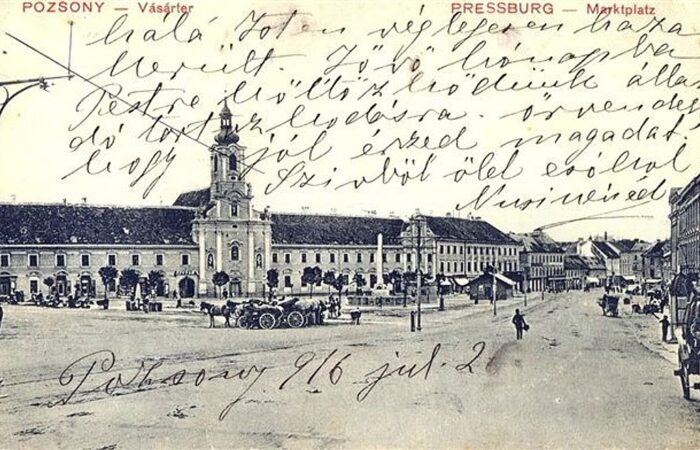 POZSONY — Vásártér PRESSBURG — Marktplatz
hálá Isten véglegesen haza
került. Jövő hónapba
Pestre költözködünk állan
dó tartózkodásra. örvendek
hogy jól érzed magadat.
Szivből ölel és csókol
Pozsony 916 jul. 2